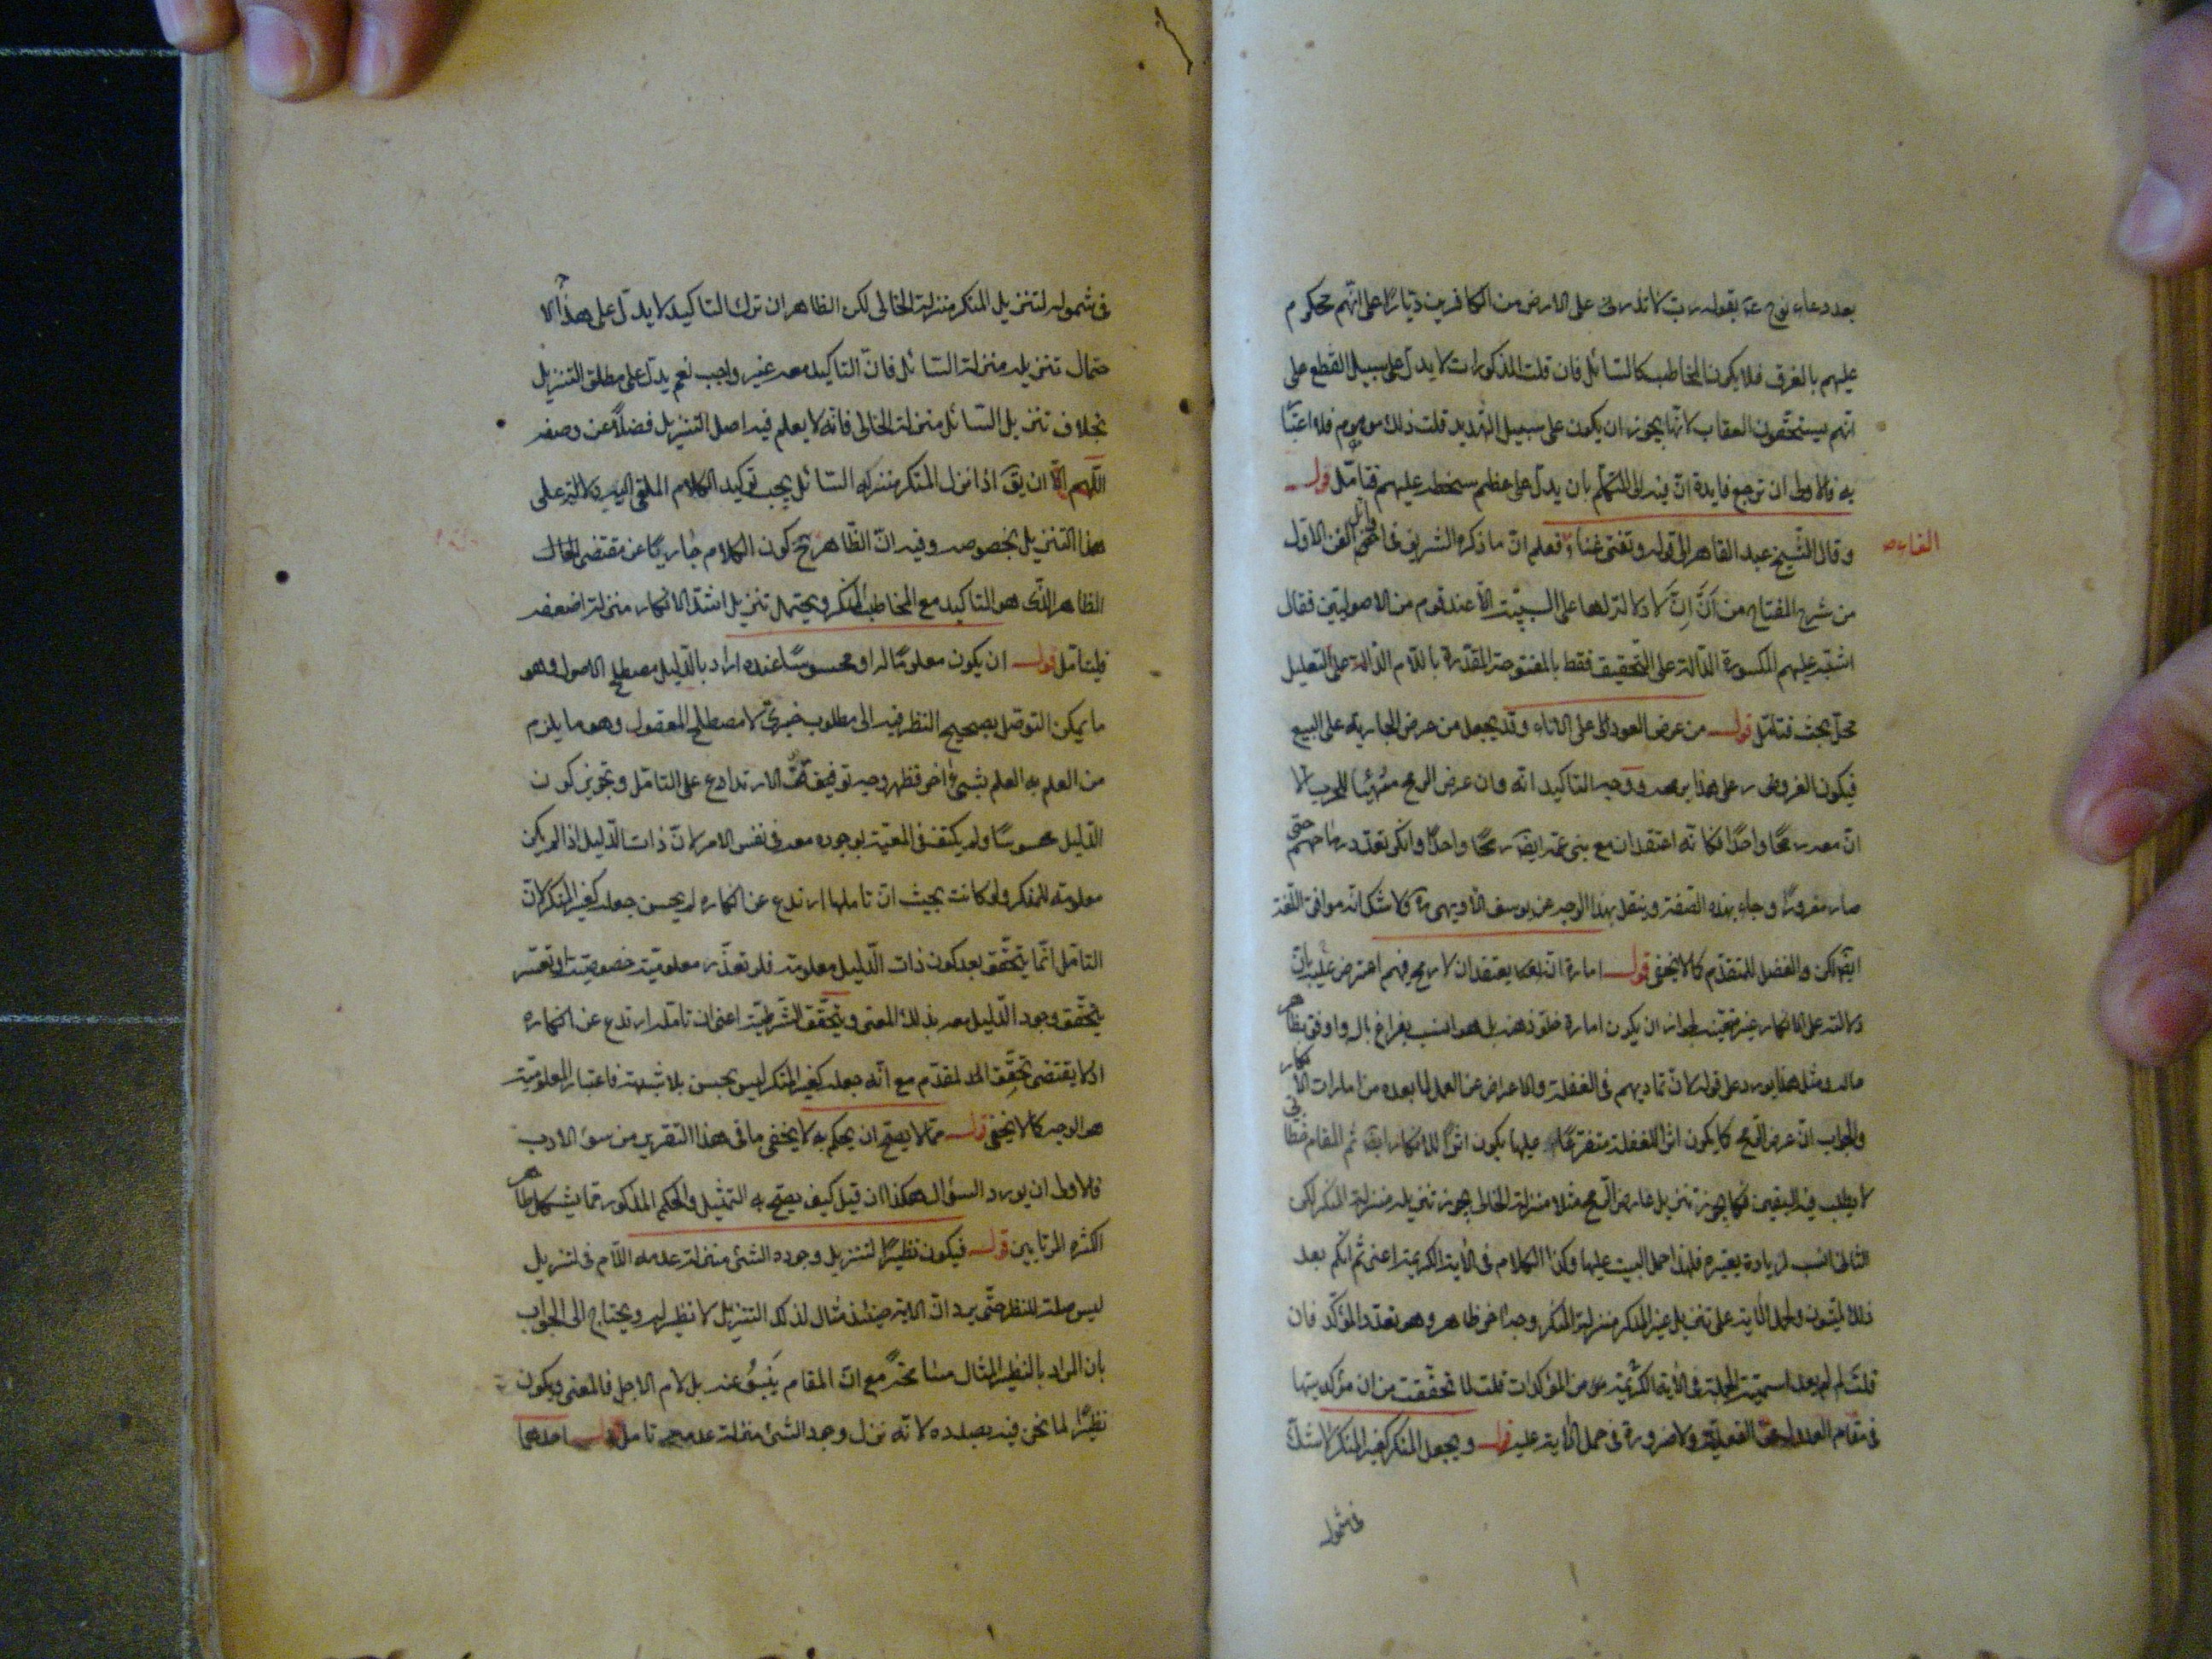 بعد دعاء نوح عـ بقوله رب لا تذر على الارض من الكافرين ديارا على انهم محكوم
عليهم بالغرق فلا يكون المخاطب كالسائل فان قلت المذكورات لا يدل على سبيل القطع على
انهم يستحقون العقاب لانها يجوز ان يكون على سبيل التهديد قلت ذلك موهوم فلا اعتبا
به فالاولى ان ترجع فايدة ان فيه الى المتكلم بان يدل على عظم سخطه عليهم فتامل قوله
وقال الشيخ عبد القاهر الى قوله وتغنى غناء الفاء فعلم ان ما ذكره الشريف فى اوائل الفن الاول
من شرح المفتاح من ان إنّ لا دلالة لها على السببية الا عند قوم من الاصوليين فقال
اشتبه عليهم المكسورة الدالة على التحقيق فقط بالمفتوحة المقدرة باللام الدالة على التعليل
محل بحث فتامل قوله من عرض العود على الاناء وقد يجعل من عرض الجارية على البيع
فيكون المعروض على هذا وجه التاكيد انه وان عرض الرمح متهيئا للحرب الا
ان معه رمحا واحدا فكانه اعتقد ان مع بنى عمه ايضا رمحا واحدا وانكر تعدد رماحهم حتى
صار مغرورا وجاء بهذه الصفة وينقل بهذا الوجه عن يوسف الاوبهى ولا شك انه موافق اللغة
ايضا لكن الفضل للمتقدم كما لا يخفى قوله امارة انه يعتقد ان لا رمح فيهم اعترض عليه بان
دلالته على الانكار غير متعين لجواز ان يكون امارة خلو ذهنه بل هو انسب بفراغ بال واوفق بظاهر
حاله ومثل هذا يورد على قوله لان تماديهم فى الغفلة والاعراض عن العمل لما بعده من امارات الانكار
والجواب ان عرض الرمح كما يكون اثر الغفلة متفرعا عليها يكون اثرا للانكار ايضا ثم المقام خطابى
لا يطلب فيه اليقين فكما يجوز تنزيل عارض الرمح مثلا منزلة الخالى يجوز تنزيله منزلة المنكر لكن
الثانى انسب لزيادة تعييره فلهذا حمل البيت عليها وكذا الكلام فى الآية الكريمة اعنى ثم انكم بعد
ذلك لميتون ولحمل الآية على تنزيل غير المنكر منزلة المنكر وجه آخر ظاهر وهو تعدد المؤكد فان
قلت لم لم يعد اسمية الجملة فى الآية الكريمة من المؤكدات قلت لما تحققت من ان مؤكديتها
فى مقام العدول عن الفعلية ولا ضرورة فى حمل الآية عليه قوله ويجعل المنكر كغير المنكر لا شك
فى شموله
فى شموله لتنزيل المنكر منزلة الخالى لكن الظاهر ان ترك التاكيد لا يدل على هذا الا
حتمال تنزيله منزلة السائل فان التاكيد معه غير واجب نعم يدل على مطلق التنزيل
بخلاف تنزيل السائل منزلة الخالى فانه لا يعلم فيه اصل التنزيل فضلا عن وصفه
اللهم الا ان يقـ اذا نزل المنكر منزلة السائل يجب توكيد الكلام الملقى اليه دلالة على
هذا التنزيل بخصوصه وفيه ان الظاهر ح كون الكلام جاريا عن مقتضى الحال
الظاهر الذى هو التاكيد مع المخاطب المنكر ويحتمل تنزيل اشد الانكار منزلة اضعفه
فليتامل قوله ان يكون معلوما له او محسوسا عنده اراد بالدليل مصطلح الاصول وهو
ما يمكن التوصل بصحيح النظر فيه الى مطلوب خبرى لا مصطلح المعقول وهو ما يلزم
من العلم به العلم بشىء آخر فظهر وجه توفيقه الارتداع على التامل وتجويز كون
الدليل محسوسا ولم يكتف فى المعية بوجوده معه فى نفس الامر لان ذات الدليل اذا لم يكن
معلومة للمنكر ولو كانت بحيث ان تاملها ارتدع عن انكاره لم يحسن جعله كغير المنكر لان
التامل انما يتحقق بعد كون ذات الدليل معلومة فلو تعذر معلومية خصوصية او تعسر
يتحقق وجود الدليل معه بذلك المعنى ويتحقق الشرطية اعنى ان تامله ارتدع عن انكاره
اذ لا يقتضى تحقق المقدم مع انه جعله كغير المنكر ليس بحسن بلا شبهة فاعتبار المعلومية
هو الوجه كما لا يخفى قوله مما لا يصح ان يحكم به لا يخفى ما فى هذا التقرير من سوء الادب
فالاولى ان يورد السؤال هكذا ان قيل كيف يصح به التمثيل والحكم المذكور مما يشكل ظاهر
الكثرة المرتابين قوله فيكون نظيرا لتنزيل وجود الشئ منزلة عدمه اللام فى لتنزيل
ليس صلة للنظر حتى يرد ان الآية حينئذ مثال لذلك التنزيل لا نظير له ويحتاج الى الجواب
بان المراد بالنظير المثال مسامحة مع ان المقام ينبو عنه بل لام الاجل فالمعنى ويكون
نظيرا لما نحن فيه بصدده لانه نزل وجود الشئ منزلة عدمه تامل قوله احدهما